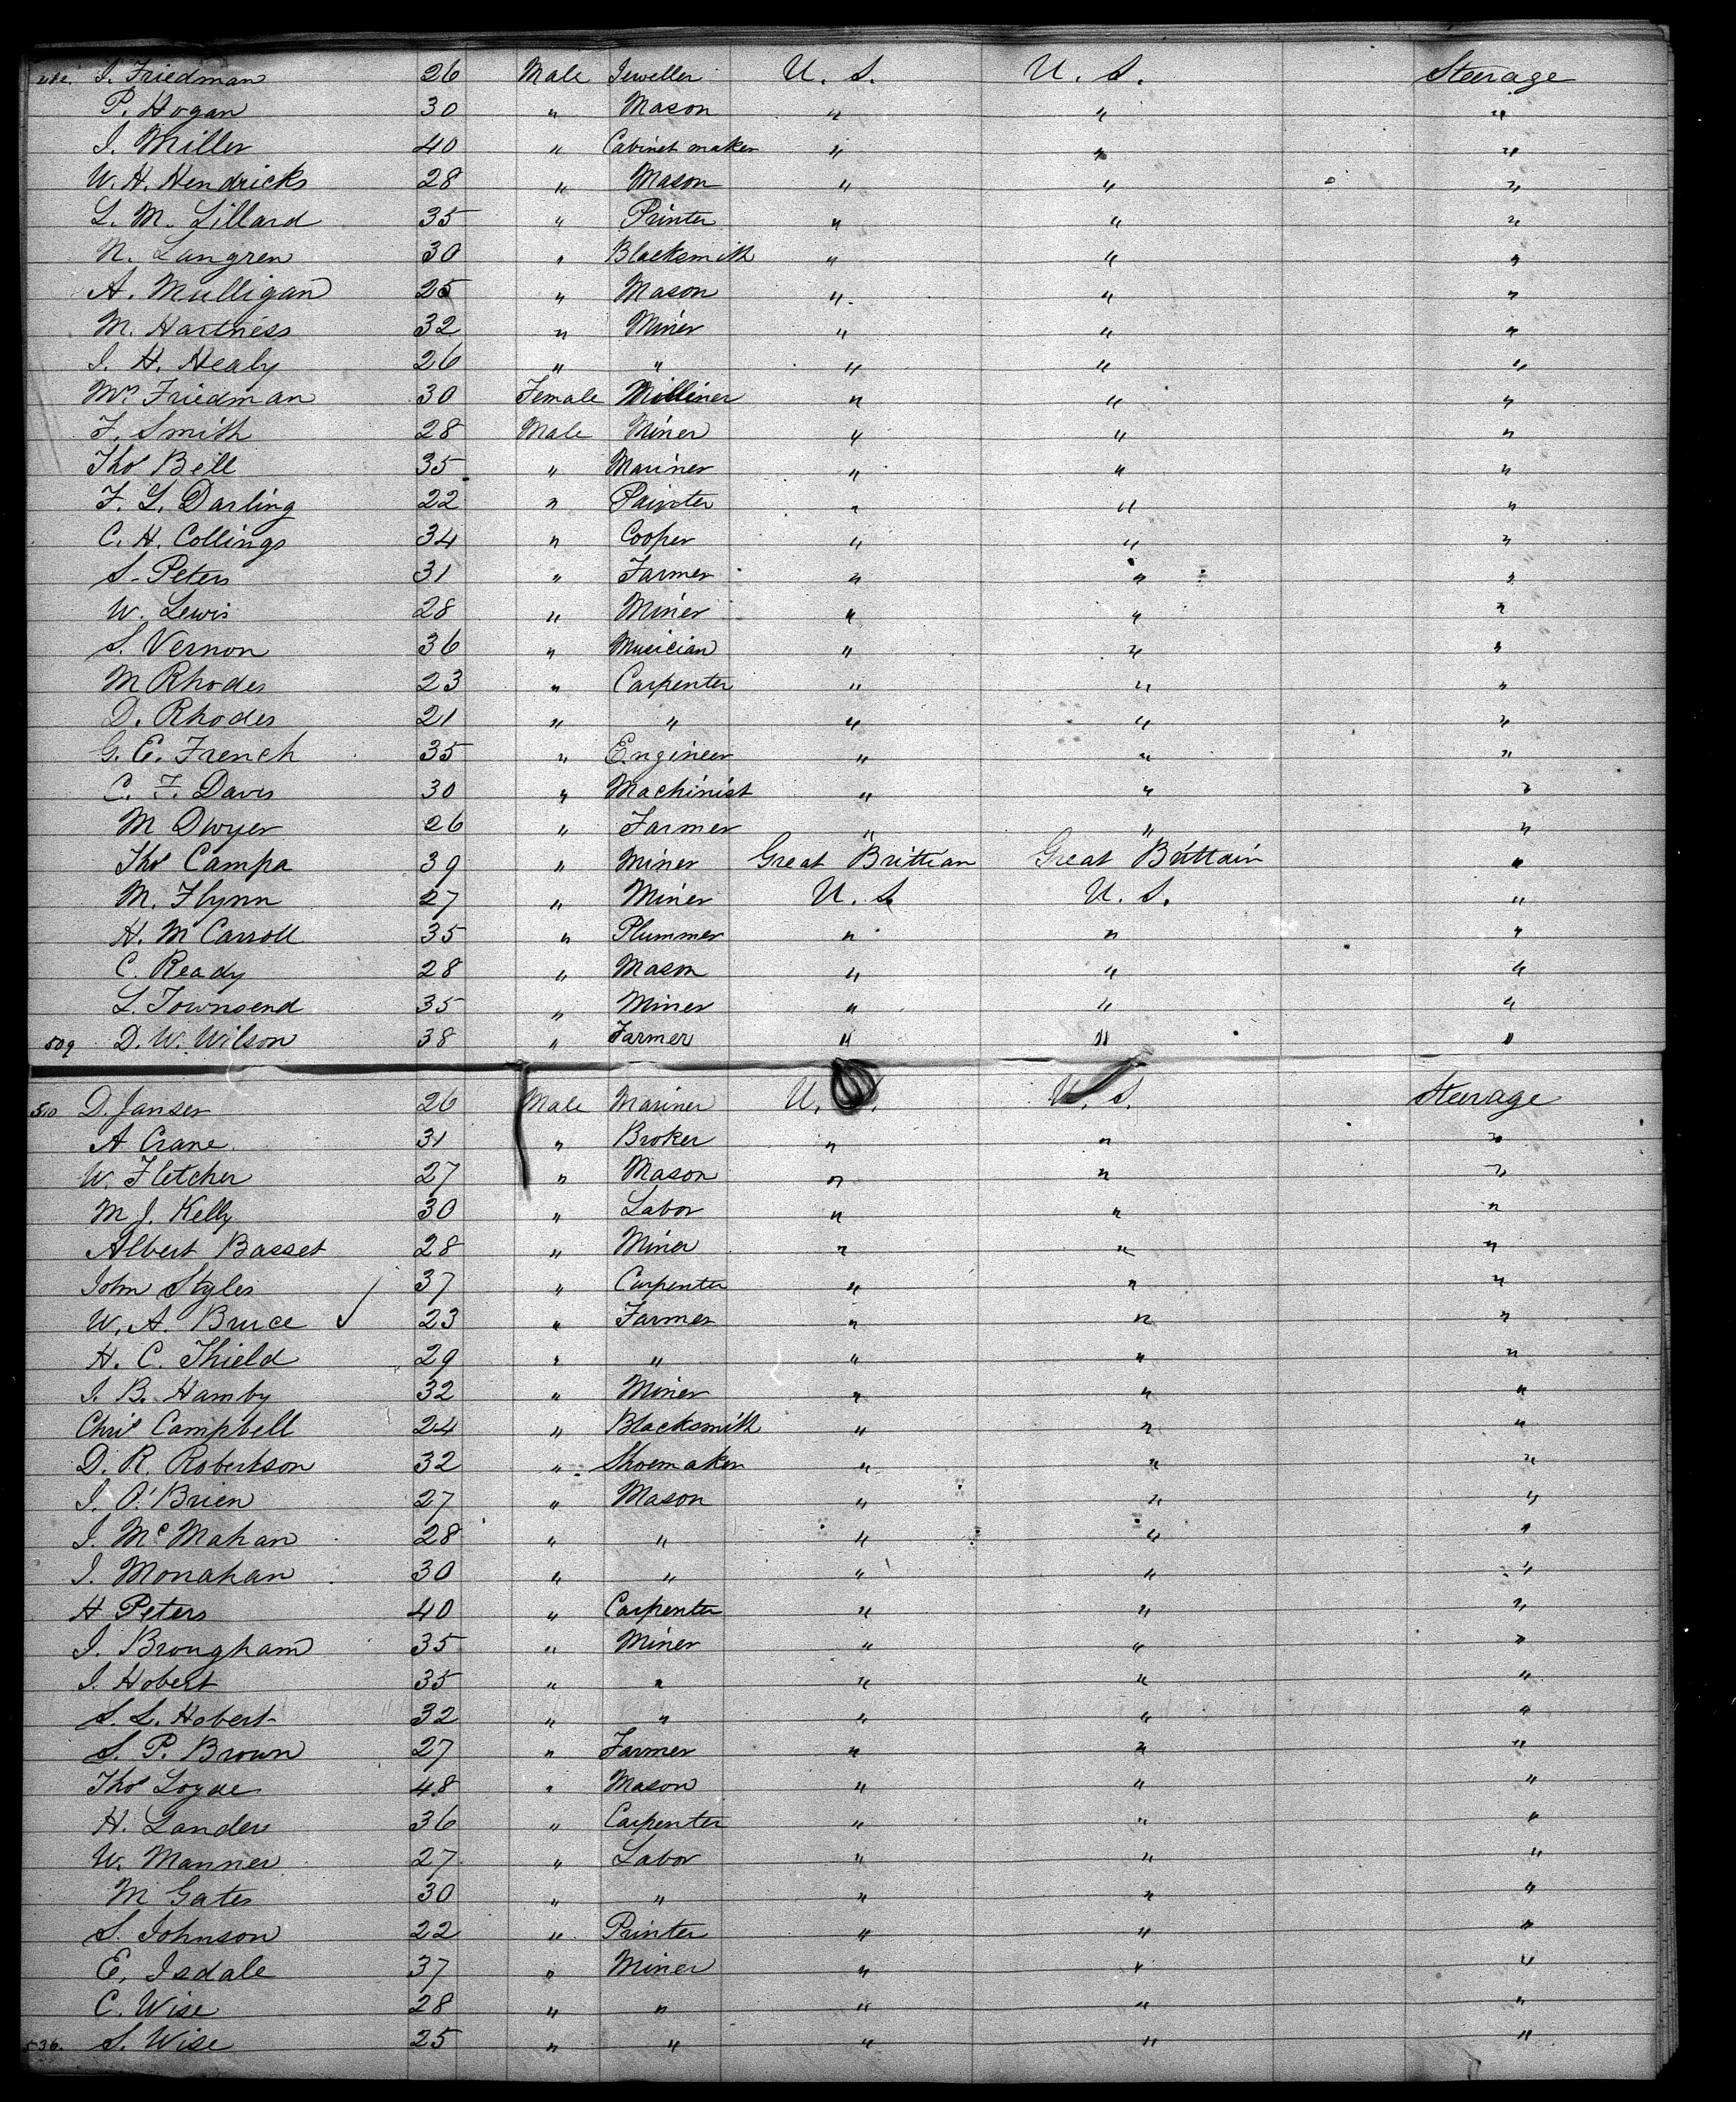 482. I. Friedman 26 Male Jeweller U. S. U. S. Steerage
P. Hogan 30 " Mason " " "
I. Miller 40 " Cabinet maker " " "
W. H. Hendricks 28 " Mason " " "
L. M. Lillard 35 " Printer " " "
N. Langren 30 " Blacksmith " " "
A. Mulligan 25 " Mason " " "
M. Hartness 32 " Miner " " "
I. H. Healy 26 " " " " "
Mrs Friedman 30 Female Milliner " " "
F. Smith 28 Male Miner " " "
Thos Bell 35 " Mariner " " "
F. L. Darling 22 " Painter " " "
C. H. Collings 34 " Cooper " " "
S. Peters 31 " Farmer " " "
W. Lewis 28 " Miner " " "
S. Vernon 36 " Musician " " "
M Rhodes 23 " Carpenter " " "
D. Rhodes 21 " " " " "
G. E. French 35 " Engineer " " "
C. F. Davis 30 " Machinist " " "
M Dwyer 26 " Farmer " " "
Thos Campa 39 " Miner Great Brittian Great Brittain "
M. Flynn 27 " Miner U. S. U. S. "
H. McCarroll 35 " Plummer " " "
C. Ready 28 " Mason " " "
L. Townsend 35 " Miner " " "
509 D. W. Wilson 38 " Farmer " " "
510 D. Janser 26 Male Mariner U. S. U. S. Steerage
A Crane 31 " Broker " " "
W. Fletcher 27 " Mason " " "
M J. Kelly 30 " Labor " " "
Albert Basset 28 " Miner " " "
John Styles 37 " Carpenter " " "
W. A. Bruce ✓ 23 " Farmer " " "
H. C. Thield 29 " " " " "
I. B. Hamby 32 " Miner " " "
Chris Campbell 24 " Blacksmith " " "
D. R. Robertson 32 " Shoemaker " " "
I. O'Brien 27 " Mason " " "
I. McMahan 28 " " " " "
I. Monahan 30 " " " " "
H Peters 40 " Carpenter " " "
I. Brougham 35 " Miner " " "
I. Hobert 35 " " " " "
S. L. Hobert 32 " " " " "
S. P. Brown 27 " Farmer " " "
Thos Loyde 48 " Mason " " "
H. Landers 36 " Carpenter " " "
W. Manner 27 " Labor " " "
M Gates 30 " " " " "
S. Johnson 22 " Printer " " "
E. Isdale 37 " Miner " " "
C. Wise 28 " " " " "
536. S. Wise 25 " " " " "